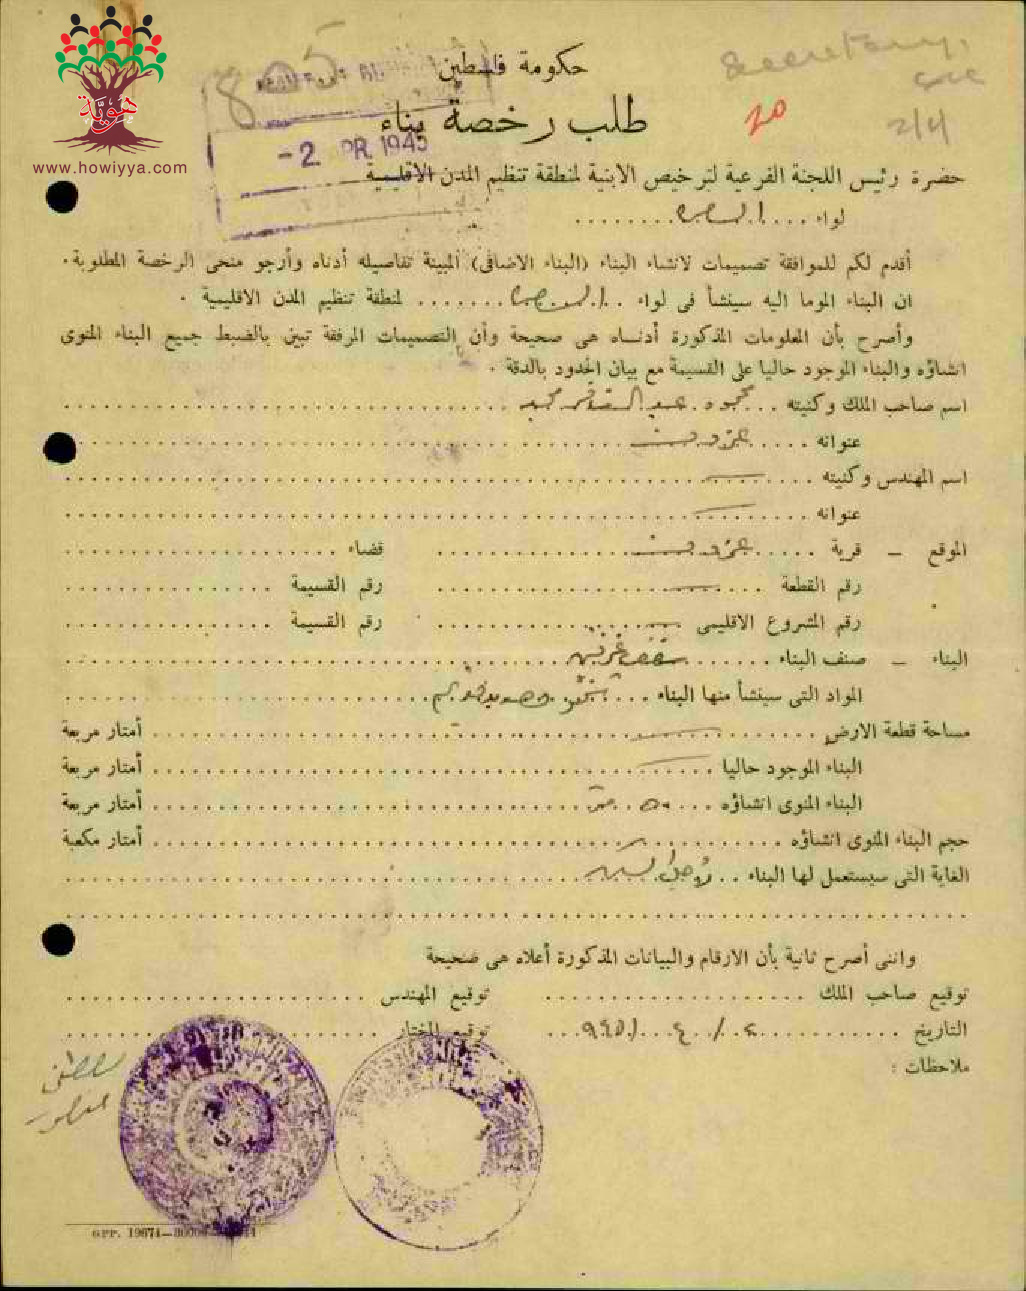 هويّة
www.howiyya.com
805
-2 APR 1945
Secretary,
2/4
20
حكومة فلسطين
طلب رخصة بناء
حضرة رئيس اللجنة الفرعية لترخيص الابنية لمنطقة تنظيم المدن الاقليمية
لواء
أقدم لكم للموافقة تصميمات لانشاء البناء (البناء الاضافى) المبينة تفاصيله أدناه وأرجو منحى الرخصة المطلوبة.
ان البناء الموما اليه سينشأ فى لواء لمنطقة تنظيم المدن الاقليمية .
وأصرح بأن المعلومات المذكورة أدناه هى صحيحة وأن التصميمات المرفقة تبين بالضبط جميع البناء المنوى
انشاؤه والبناء الموجود حاليا على القسيمة مع بيان الحدود بالدقة .
اسم صاحب الملك وكنيته محمود عبد
عنوانه عزون
اسم المهندس وكنيته
عنوانه
الموقع – قرية عزون قضاء
رقم القطعة رقم القسيمة
رقم المشروع الاقليمى رقم القسيمة
البناء – صنف البناء
المواد التى سينشأ منها البناء
مساحة قطعة الارض أمتار مربعة
البناء الموجود حاليا أمتار مربعة
البناء المنوى انشاؤه أمتار مربعة
حجم البناء المنوى انشاؤه أمتار مكعبة
الغاية التى سيستعمل لها البناء
واننى أصرح ثانية بأن الارقام والبيانات المذكورة أعلاه هى صحيحة
توقيع صاحب الملك توقيع المهندس
التاريخ ٢/٤/٩٤٥ توقيع المختار
ملاحظات :